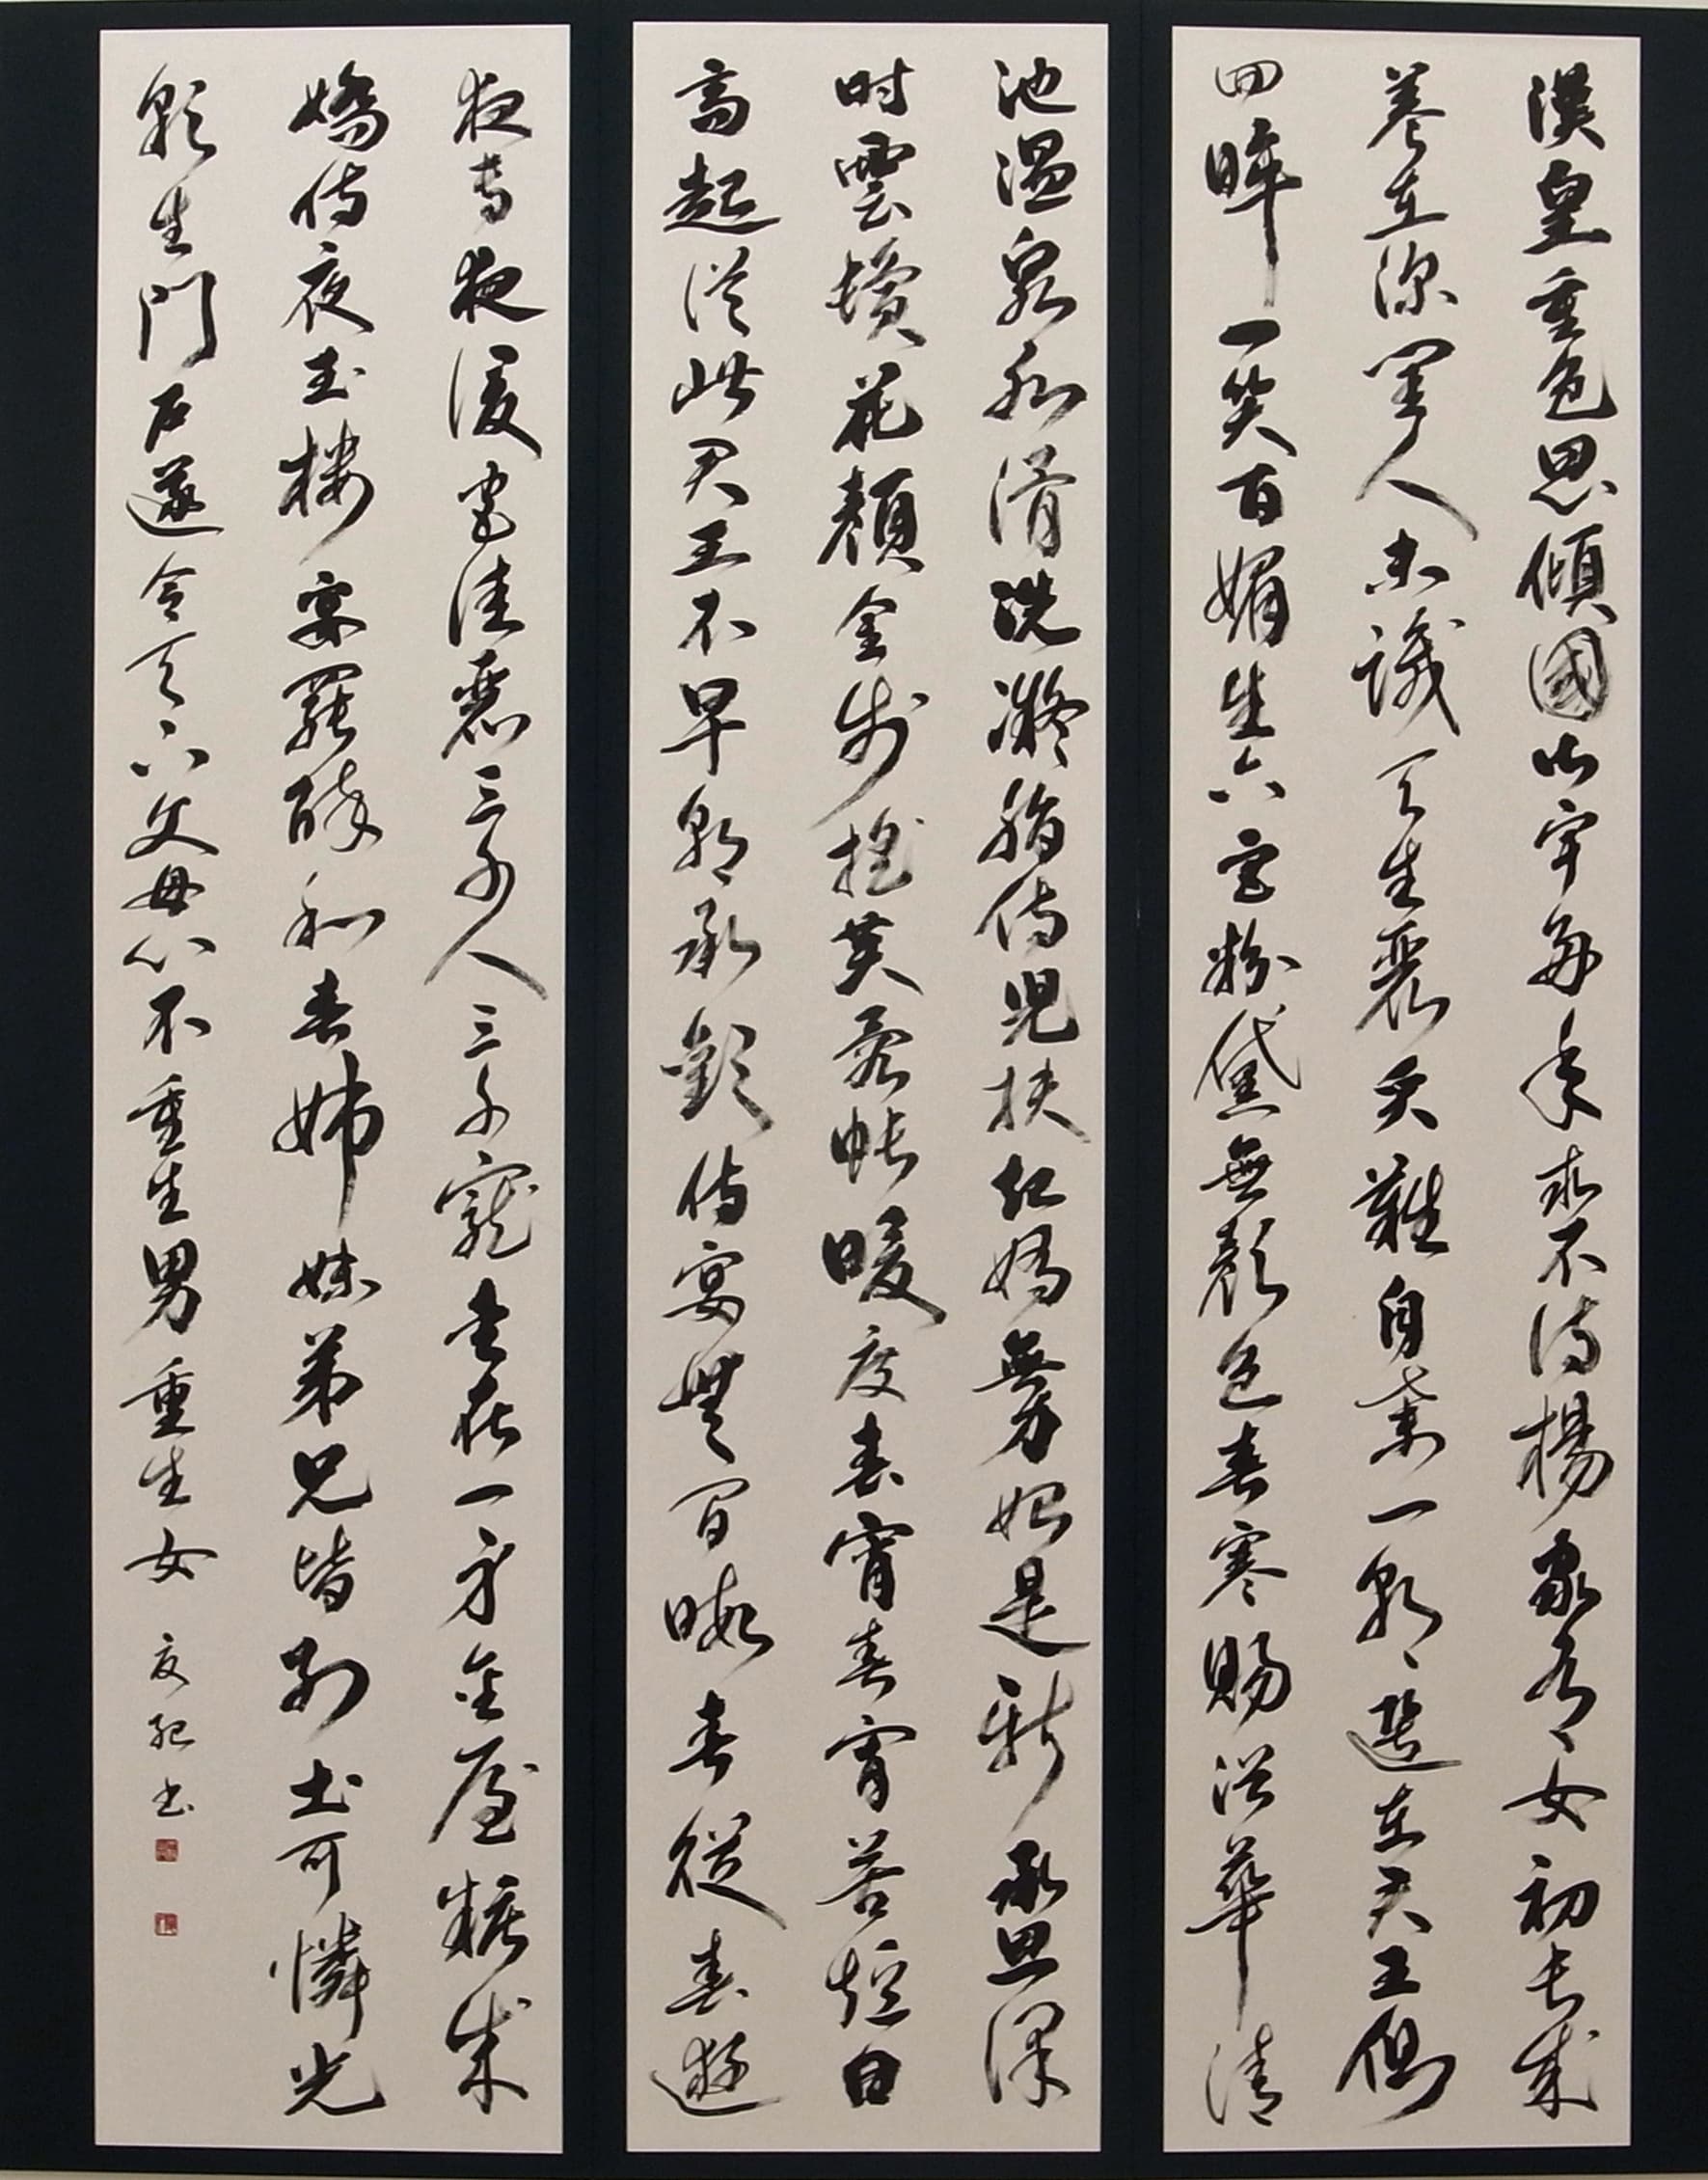 漢皇重色思傾國御宇多年求不得楊家有女初長成
養在深閨人未識天生麗質難自棄一朝選在君王側
回眸一笑百媚生六宮粉黛無顏色春寒賜浴華清
池溫泉水滑洗凝脂侍兒扶起嬌無力始是新承恩澤
時雲鬢花顏金步搖芙蓉帳暖度春宵春宵苦短日
高起從此君王不早朝承歡侍宴無閒暇春從春遊
夜專夜後宮佳麗三千人三千寵愛在一身金屋粧成
嬌侍夜玉樓宴罷醉和春姊妹弟兄皆列土可憐光
彩生門戶遂令天下父母心不重生男重生女 紀書